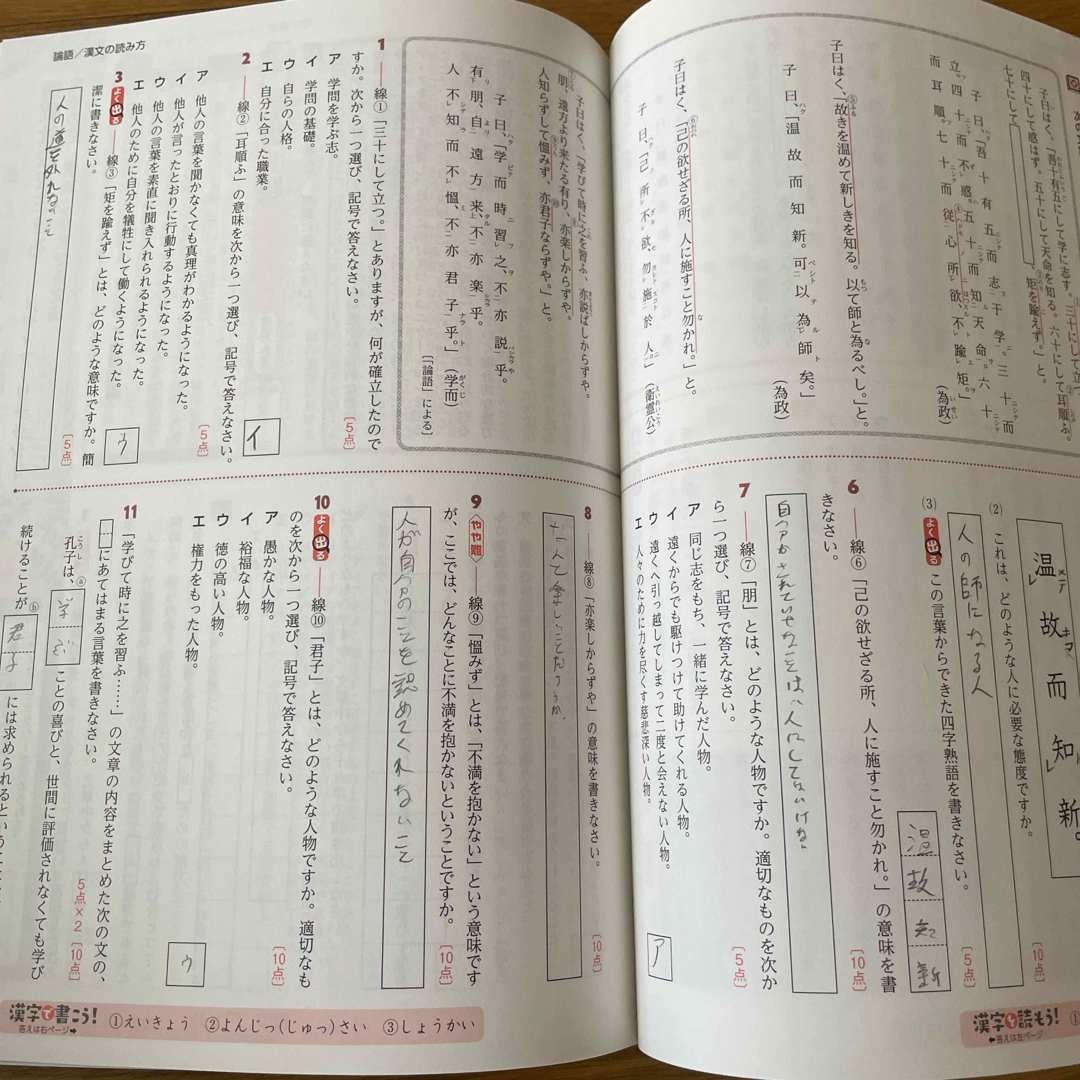 子曰はく、「吾十有五にして学に志す。三十にして立つ。
四十にして惑はず。五十にして天命を知る。六十にして耳順ふ。
七十にして
矩を踰えず。」と。
子曰、「吾十有五而志于学。三十而
立。四十而不惑。五十而知天命。六十
而耳順。七十而従心所欲、不踰矩。」
(為政)
子曰はく、「故きを温めて新しきを知る。以て師と為るべし。」と。
子曰、「温故而知新。可以為師矣。」
(為政)
子曰はく、「己の欲せざる所、人に施すこと勿かれ。」と。
子曰、「己所不欲、勿施於人。」
(衛霊公)
子曰はく、「学びて時に之を習ふ、亦説ばしからずや。
朋、遠方より来たる有り、亦楽しからずや。
人知らずして慍みず、亦君子ならずや。」と。
子曰、「学而時習之、不亦説乎。
有朋、自遠方来、不亦楽乎。
人不知而不慍、不亦君子乎。」(学而)
[「論語」による]
論語/漢文の読み方
1 ――線①「三十にして立つ。」とありますが、何が確立したので
すか。次から一つ選び、記号で答えなさい。
[5点]
ア 学問を学ぶ志。
イ 学問の基礎。
ウ 自らの人格。
エ 自分に合った職業。
イ
2 ――線②「耳順ふ」の意味を次から一つ選び、記号で答えなさい。
[5点]
ア 他人の言葉を聞かなくても真理がわかるようになった。
イ 他人が言ったとおりに行動するようになった。
ウ 他人の言葉を素直に聞き入れられるようになった。
エ 他人のために自分を犠牲にして働くようになった。
ウ
3 よく出る ――線③「矩を踰えず」とは、どのような意味ですか。簡
潔に書きなさい。
[5点]
人の道を外れること
温故而知新。
(2) これは、どのような人に必要な態度ですか。
[10点]
人の師になる人
(3) よく出る この言葉からできた四字熟語を書きなさい。
[5点]
温故知新
6 ――線⑥「己の欲せざる所、人に施すこと勿かれ。」の意味を書
きなさい。
[10点]
7 ――線⑦「朋」とは、どのような人物ですか。適切なものを次か
ら一つ選び、記号で答えなさい。
[5点]
ア 同じ志をもち、一緒に学んだ人物。
イ 遠くからでも駆けつけて助けてくれる人物。
ウ 遠くへ引っ越してしまって二度と会えない人物。
エ 人々のために力を尽くす慈悲深い人物。
ア
8 ――線⑧「亦楽しからずや」の意味を書きなさい。
[10点]
9 やや難 ――線⑨「慍みず」とは、「不満を抱かない」という意味です
が、ここでは、どんなことに不満を抱かないということですか。
[10点]
人が自分のことを認めてくれないこと
10 よく出る ――線⑩「君子」とは、どのような人物ですか。適切なも
のを次から一つ選び、記号で答えなさい。
[10点]
ア 愚かな人物。
イ 裕福な人物。
ウ 徳の高い人物。
エ 権力をもった人物。
ウ
11 「学びて時に之を習ふ……」の文章の内容をまとめた次の文の、
にあてはまる言葉を書きなさい。
5点×2[10点]
孔子は、ⓐ 学ぶ ことの喜びと、世間に評価されなくても学び
続けることがⓑ 君子 には求められるという
漢字で書こう! 答えは右ページ→ ①えいきょう ②よんじっ(じゅっ)さい ③しょうかい
漢字を読もう! ←答えは左ページ ①